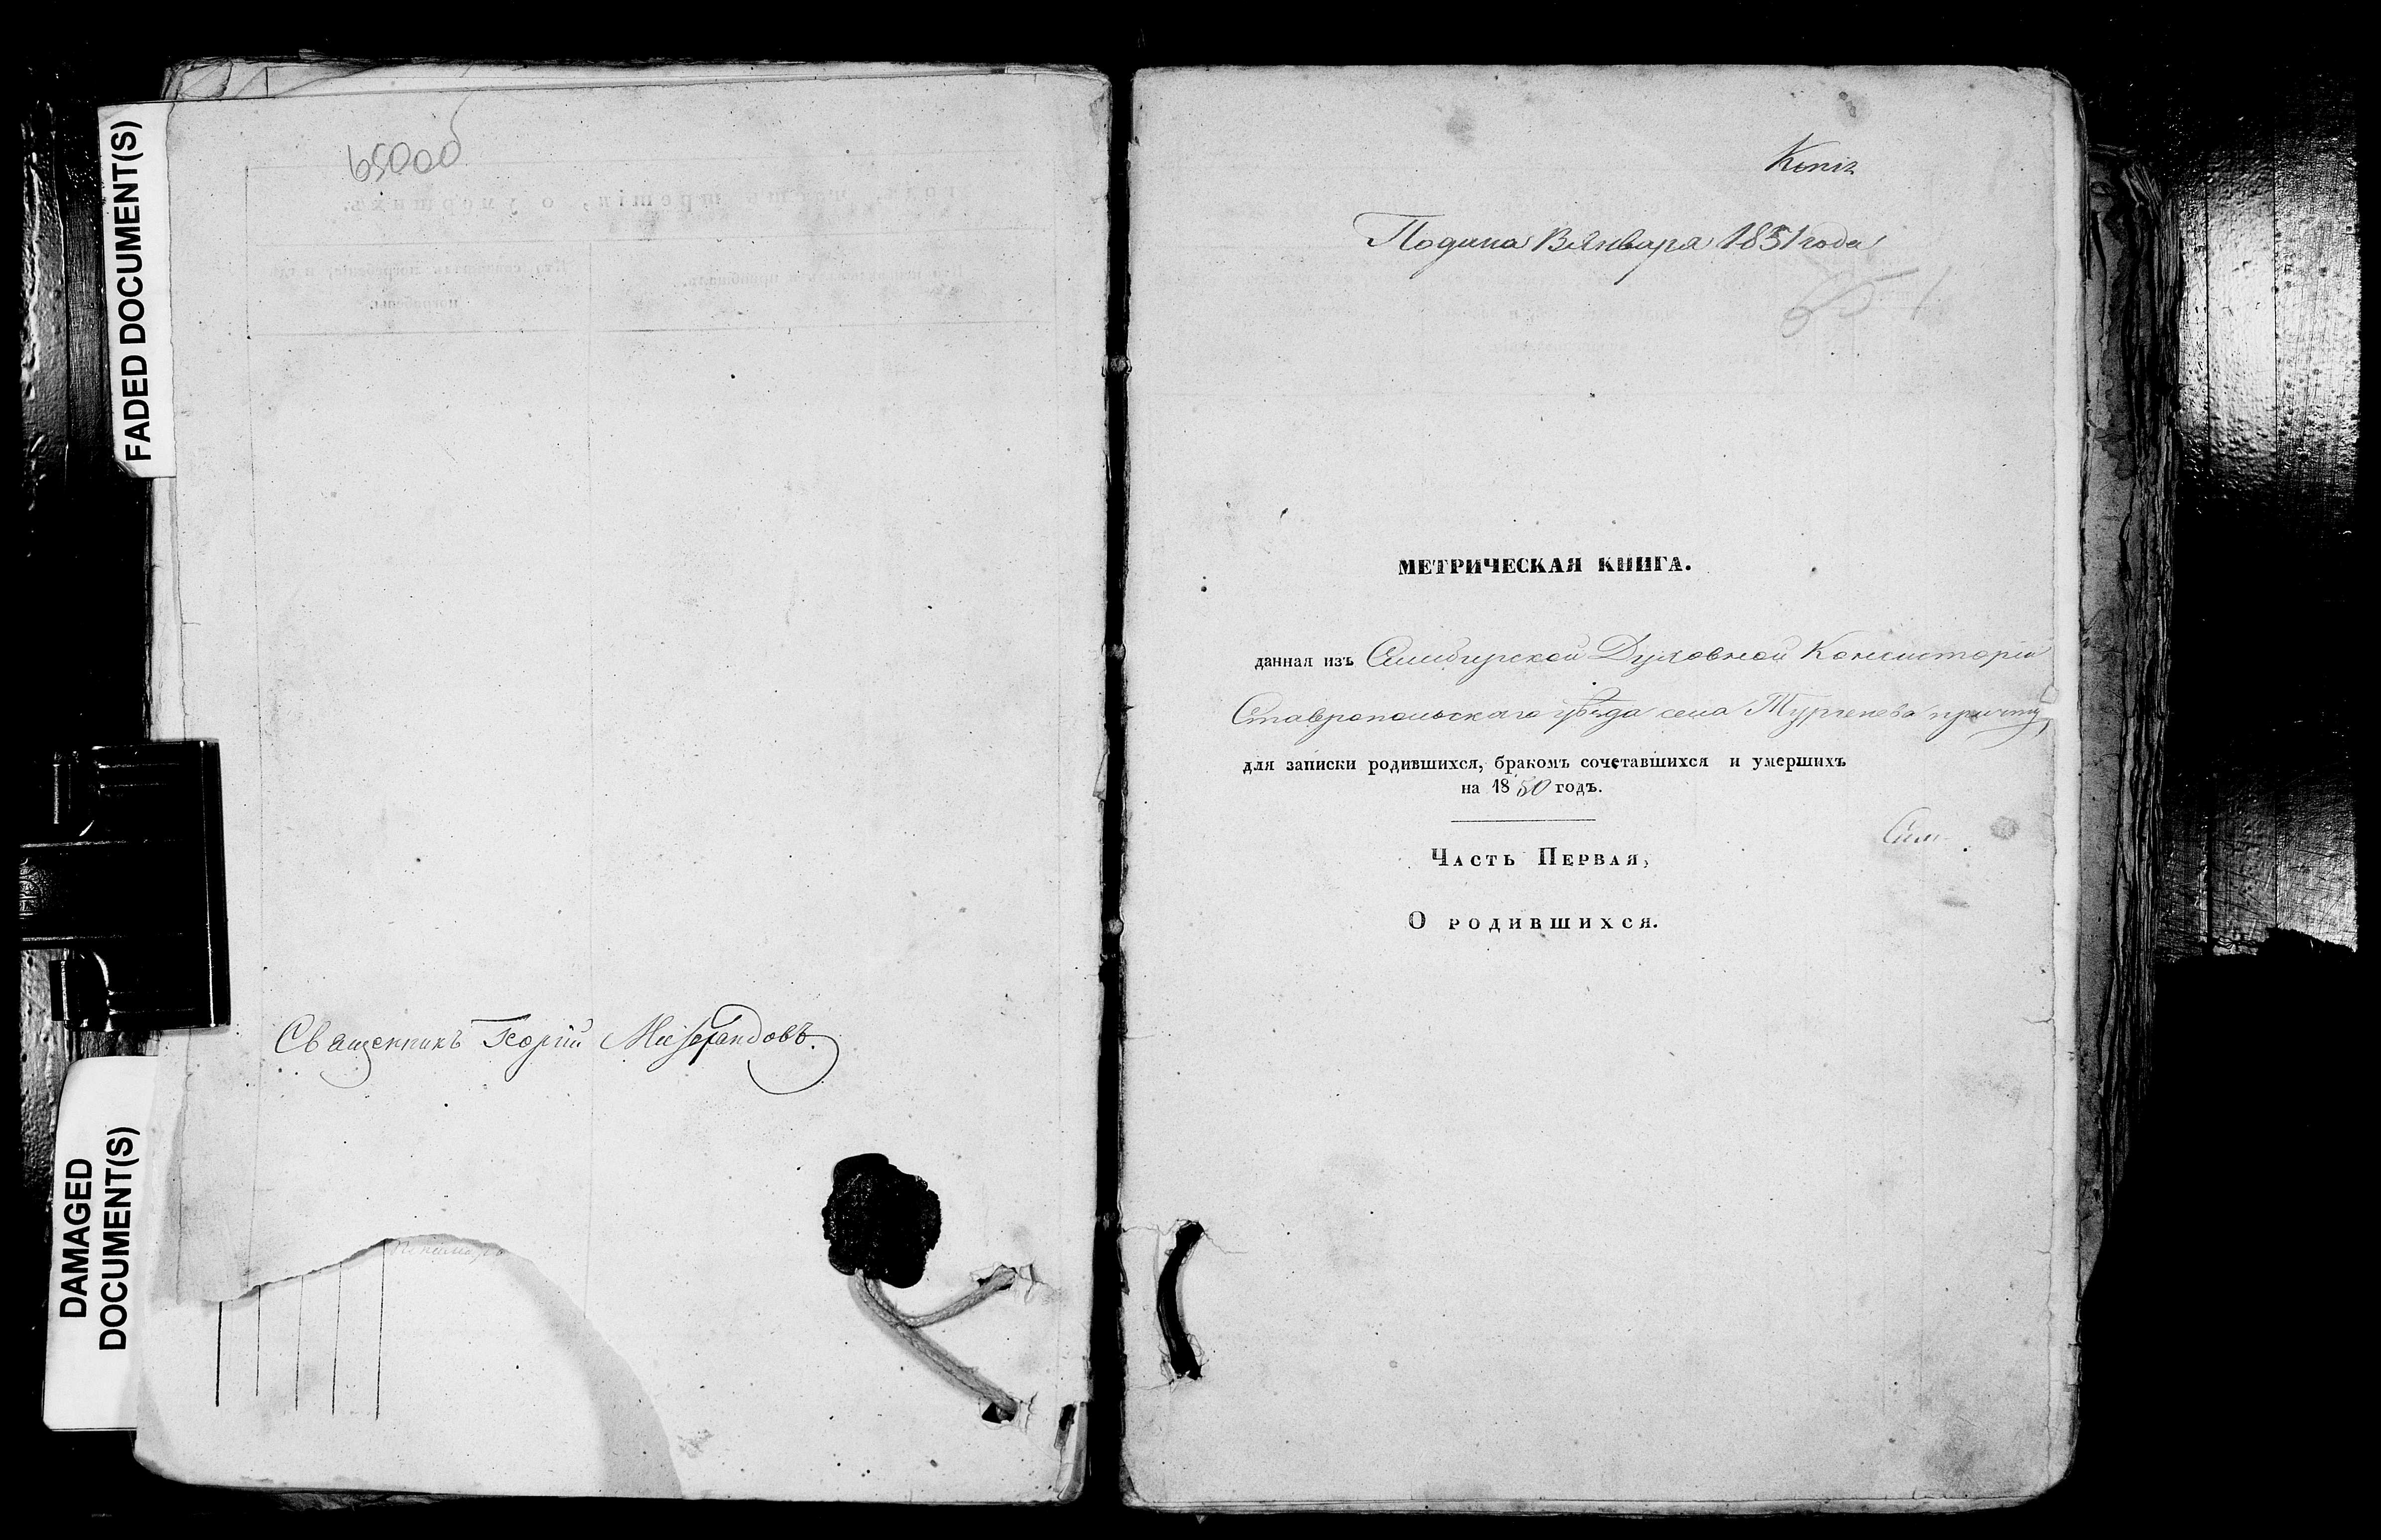 FADED DOCUMENT(S)
65000б
Священникъ Георгій
DAMAGED
DOCUMENT(S)
Копія
Подана 8 Января 1851 года
651
МЕТРИЧЕСКАЯ КНИГА.
данная изъ Симбирской Духовной Консисторіи
Ставропольскаго уѣзда села Тургенева причту
для записки родившихся, бракомъ сочетавшихся и умершихъ
на 1850 годъ.
Сим
Часть Первая,
О родившихся.